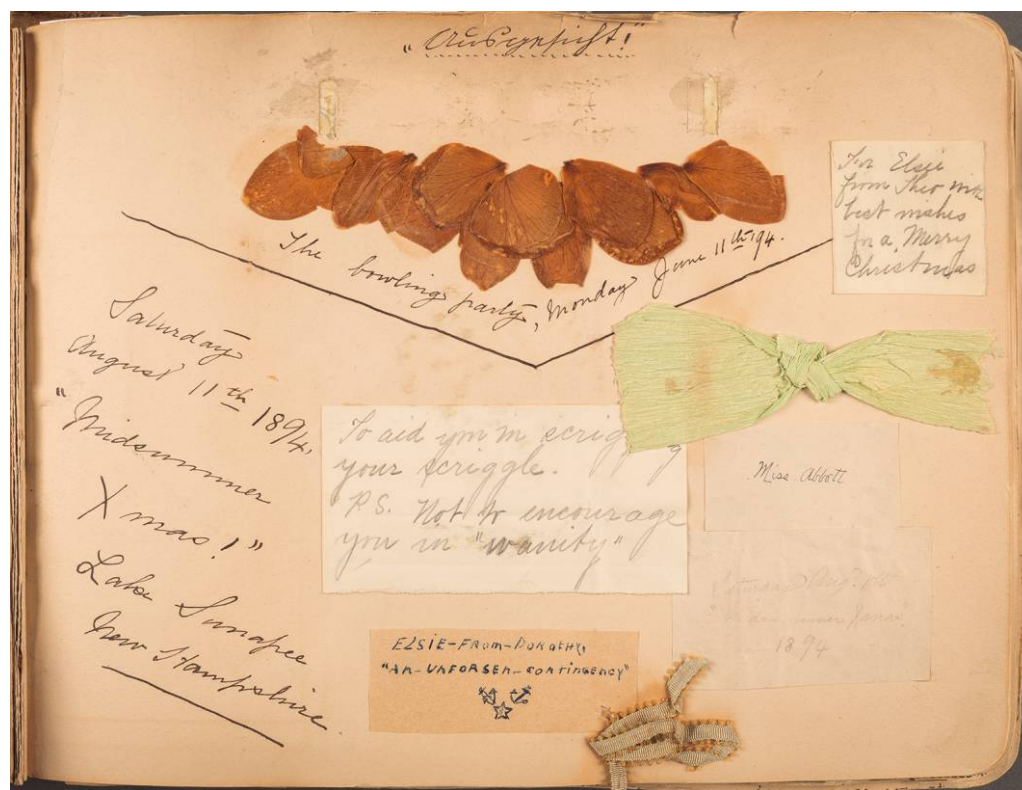 "Ausgesicht!"
The bowling party, Monday June 11th '94.
For Elsie
from Theo with
best wishes
for a Merry
Christmas
Saturday
August 11th 1894.
"Midsummer
Xmas!"
Lake Sunapee
New Hampshire
To aid you in
your scriggle.
P.S. Not to encourage
you in "wanity"
Miss Abbott
1894
ELSIE-FROM-DOROTHY
"AN-UNFORSEN-CONTINGENCY"